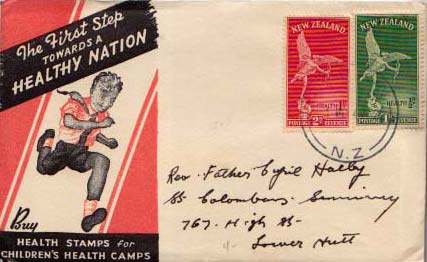 The First Step
TOWARDS A
HEALTHY NATION
NEW ZEALAND
HEALTH
POSTAGE REVENUE
NEW ZEALAND
HEALTH
POSTAGE REVENUE
N.Z
Rev. Father Cyril
St Columbans Seminary
767. High St.
Lower Hutt
Buy
HEALTH STAMPS for
CHILDREN'S HEALTH CAMPS